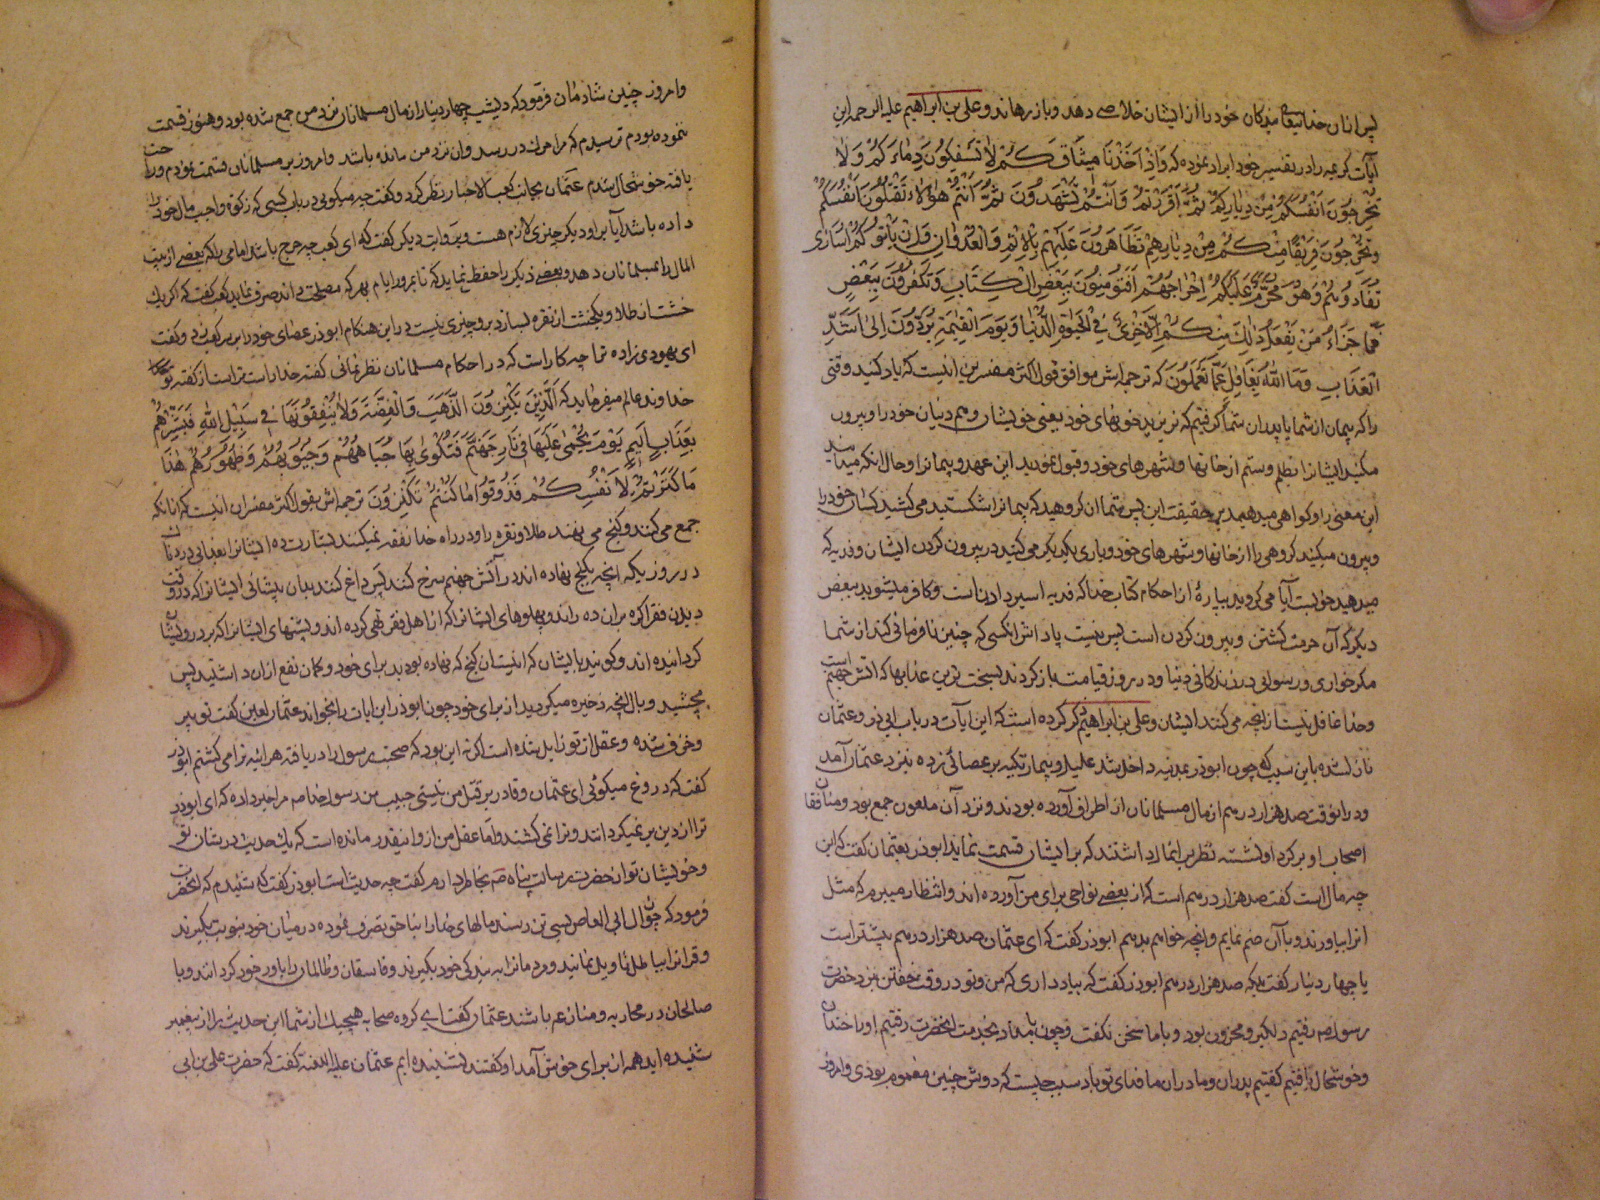 پس از آن خدا تعالی بندکان خود را از ایشان خلاصی دهد و باز رهاند و علی بن ابراهیم علیه الرحمه این
آیات کریمه را در تفسیر خود ایراد نموده که وَاِذْ اَخَذْنَا مِیثَاقَکُمْ لاٰ تَسْفِکُونَ دِمٰاءَکُمْ وَلاٰ
تُخْرِجُونَ اَنْفُسَکُمْ مِنْ دِیٰارِکُمْ ثُمَّ اَقْرَرْتُمْ وَاَنْتُمْ تَشْهَدُونَ ثُمَّ اَنْتُمْ هٰؤُلاٰءِ تَقْتُلُونَ اَنْفُسَکُمْ
وَتُخْرِجُونَ فَرِیقًا مِنْکُمْ مِنْ دِیٰارِهِمْ تَظٰاهَرُونَ عَلَیْهِمْ بِالْاِثْمِ وَالْعُدْوٰانِ وَاِنْ یَأْتُوکُمْ اُسٰارٰی
تُفٰادُوهُمْ وَهُوَ مُحَرَّمٌ عَلَیْکُمْ اِخْرٰاجُهُمْ اَفَتُؤْمِنُونَ بِبَعْضِ الْکِتٰابِ وَتَکْفُرُونَ بِبَعْضٍ
فَمٰا جَزٰاءُ مَنْ یَفْعَلُ ذٰلِکَ مِنْکُمْ اِلّاٰ خِزْیٌ فِی الْحَیٰوةِ الدُّنْیٰا وَیَوْمَ الْقِیٰمَةِ یُرَدُّونَ اِلٰی اَشَدِّ
الْعَذٰابِ وَمَا اللّٰهُ بِغٰافِلٍ عَمّٰا تَعْمَلُونَ که ترجمه‌اش موافق قول اکثر مفسرین اینست که یاد کنید وقتی
را که پیمان از شما یا پدران شما کرفتیم که نریزید خونهای خود یعنی خویشان و هم دینان خود را و بیرون
مکنید ایشانرا بظلم و ستم از خانها و شهرهای خود و قبول نمودید این عهد و پیمانرا و حال آنکه میدانید
این معنی را و کواهی میدهید بر حقیقت این پس شما آن کروهید که پیمانرا شکستید می کشید کسان خود را
و بیرون میکنید کروهی را از خانها و شهرهای خود و یاری یکدیکر می کنید در بیرون کردن ایشان و فدیه که
میدهید خوبست آیا می کروید بپارهٔ از احکام کتاب خدا که فدیه اسیر دادنست و کافر میشوید ببعض
دیکر که آن حرمت کشتن و بیرون کردن است پس نیست پاداش آنکسی که چنین نافرمانی کند از شما
مکر خواری و رسوایی در زندکانی دنیا و در روز قیامت باز کردند بسخت ترین عذابها که آتش جهنم است
و خدا غافل نیست از آنچه می کنند ایشان و علی بن ابراهیم ذکر کرده است که این آیات در باب ابی ذر و عثمان
نازل شده باین سبب که چون ابوذر بمدینه داخل شد علیل و بیمار تکیه بر عصائی زده نیز نزد عثمان آمد
و در آنوقت صد هزار درهم از مال مسلمانان از اطراف آورده بودند و نزد آن ملعون جمع بود و منافقان
اصحاب او بر کرد او نشسته نظر بر آنها داشتند که بر ایشان قسمت نماید ابوذر بعثمان کفت که این
چه مال است کفت صد هزار درهم است که از بعضی نواحی برای من آورده اند و انتظار میبرم که مثل
آنرا بیاورند و با آن ضم نمایم و بآنچه خواهم بدهم ابوذر کفت که ای عثمان صد هزار درهم بیشتر است
یا چهار دینار کفت بلکه صد هزار درهم ابوذر کفت که بیاد داری که من و تو در وقت خفتن بنزد حضرت
رسول ص رفتیم دلکیر و محزون بود و با ما سخن نکفت و چون بامداد بخدمت آنحضرت رفتیم او را خندان
و خوشحال یافتیم کفتیم پدران و مادران ما فدای تو باد سبب چیست که دوش چنین مغموم بودی و امروز
و امروز چنین شادمان فرمود که دیشب چهار دینار از مال مسلمانان نزد من جمع شده بود و هنوز قسمت
ننموده بودم ترسیدم که مرا مرک در رسد و آن نزد من مانده باشد و امروز بر مسلمانان قسمت نمودم و راحت
یافته خوشحال شدم عثمان بجانب کعب الاحبار نظر کرد و کفت چه میکویی در باب کسی که زکوة واجب مال خود را
داده باشد آیا بر او دیکر چیزی لازم هست و بروایت دیکر کفت که ای کعب چه حرج باشد امامی را که بعضی از بیت
المال را بمسلمانان دهد و بعضی دیکر را حفظ نماید که تا بمرور ایام بهر که مصلحت داند صرف نماید کعب کفت که اکر یک
خشت از طلا و یکخشت از نقره بسازد بر او چیزی نیست در این هنکام ابوذر عصای خود را بر سر کعب زد و کفت
ای یهودی زاده ترا چه کار است که در احکام مسلمانان نظر نمائی کفته خدا راست تر است از کفته تو که
خداوند عالم میفرماید که اَلَّذِینَ یَکْنِزُونَ الذَّهَبَ وَالْفِضَّةَ وَلاٰ یُنْفِقُونَهٰا فِی سَبِیلِ اللّٰهِ فَبَشِّرْهُمْ
بِعَذٰابٍ اَلِیمٍ یَوْمَ یُحْمٰی عَلَیْهٰا فِی نٰارِ جَهَنَّمَ فَتُکْوٰی بِهٰا جِبٰاهُهُمْ وَجُنُوبُهُمْ وَظُهُورُهُمْ هٰذٰا
مٰا کَنَزْتُمْ لِاَنْفُسِکُمْ فَذُوقُوا مٰا کُنْتُمْ تَکْنِزُونَ ترجمه‌اش بقول اکثر مفسران اینست که آنانکه
جمع می کنند و کنج می نهند طلا و نقره را و در راه خدا نفقه نمیکنند بشارت ده ایشانرا بعذابی دردناک
در روزیکه آنچه بکنج نهاده اند در آتش جهنم سرخ کنند پس داغ کنند بدان پیشانی ایشانرا که در وقت
دیدن فقرا کره بران ده داند و پهلوهای ایشانرا که از اهل فقر تهی کرده اند و پشتهای ایشانرا که بر درویشان
کردانیده اند و کویند بایشان که اینست آن کنج که نهاده بودید برای خود و کمان نفع از ان داشتید پس
بچشید وبال آنچه ذخیره میکردید از برای خود چون ابوذر این آیات را بخواند عثمان لعین کفت تو پیر
و خرف شده و عقل از تو زایل شده است اکر نه این بود که صحبت رسول را دریافته هر آئینه ترا می کشتم ابوذر
کفت که دروغ میکوئی ای عثمان و قادر بر قتل من نیستی حبیب من رسول خدا ص مرا خبر داده که ای ابوذر
ترا از دین بر نمیکردانند و ترا نمی کشند و اما عقل من از او اینقدر مانده است که یک حدیث در شان تو
و خویشان تو از حضرت رسالت پناه ص بخاطر دارم کفت چه حدیث است ابوذر کفت که شنیدم که آنحضرت
فرمود که چون آل ابی العاص بسی تن رسند مالهای خدا را بناحق تصرف نموده در میان خود بنوبت بکیرند
و قرانرا بباطل تاویل نمانیند و مردمانرا به بندکی خود بکیرند و فاسقان و ظالمان را یاور خود کردانند و با
صالحان در محاربه و منازعه باشند عثمان کفت ای کروه صحابه هیچیک از شما این حدیث را از پیغمبر
شنیده اید همه از برای خوش آمد او کفتند نشنیده ایم عثمان علیه اللعنه کفت که حضرت علی بن ابی